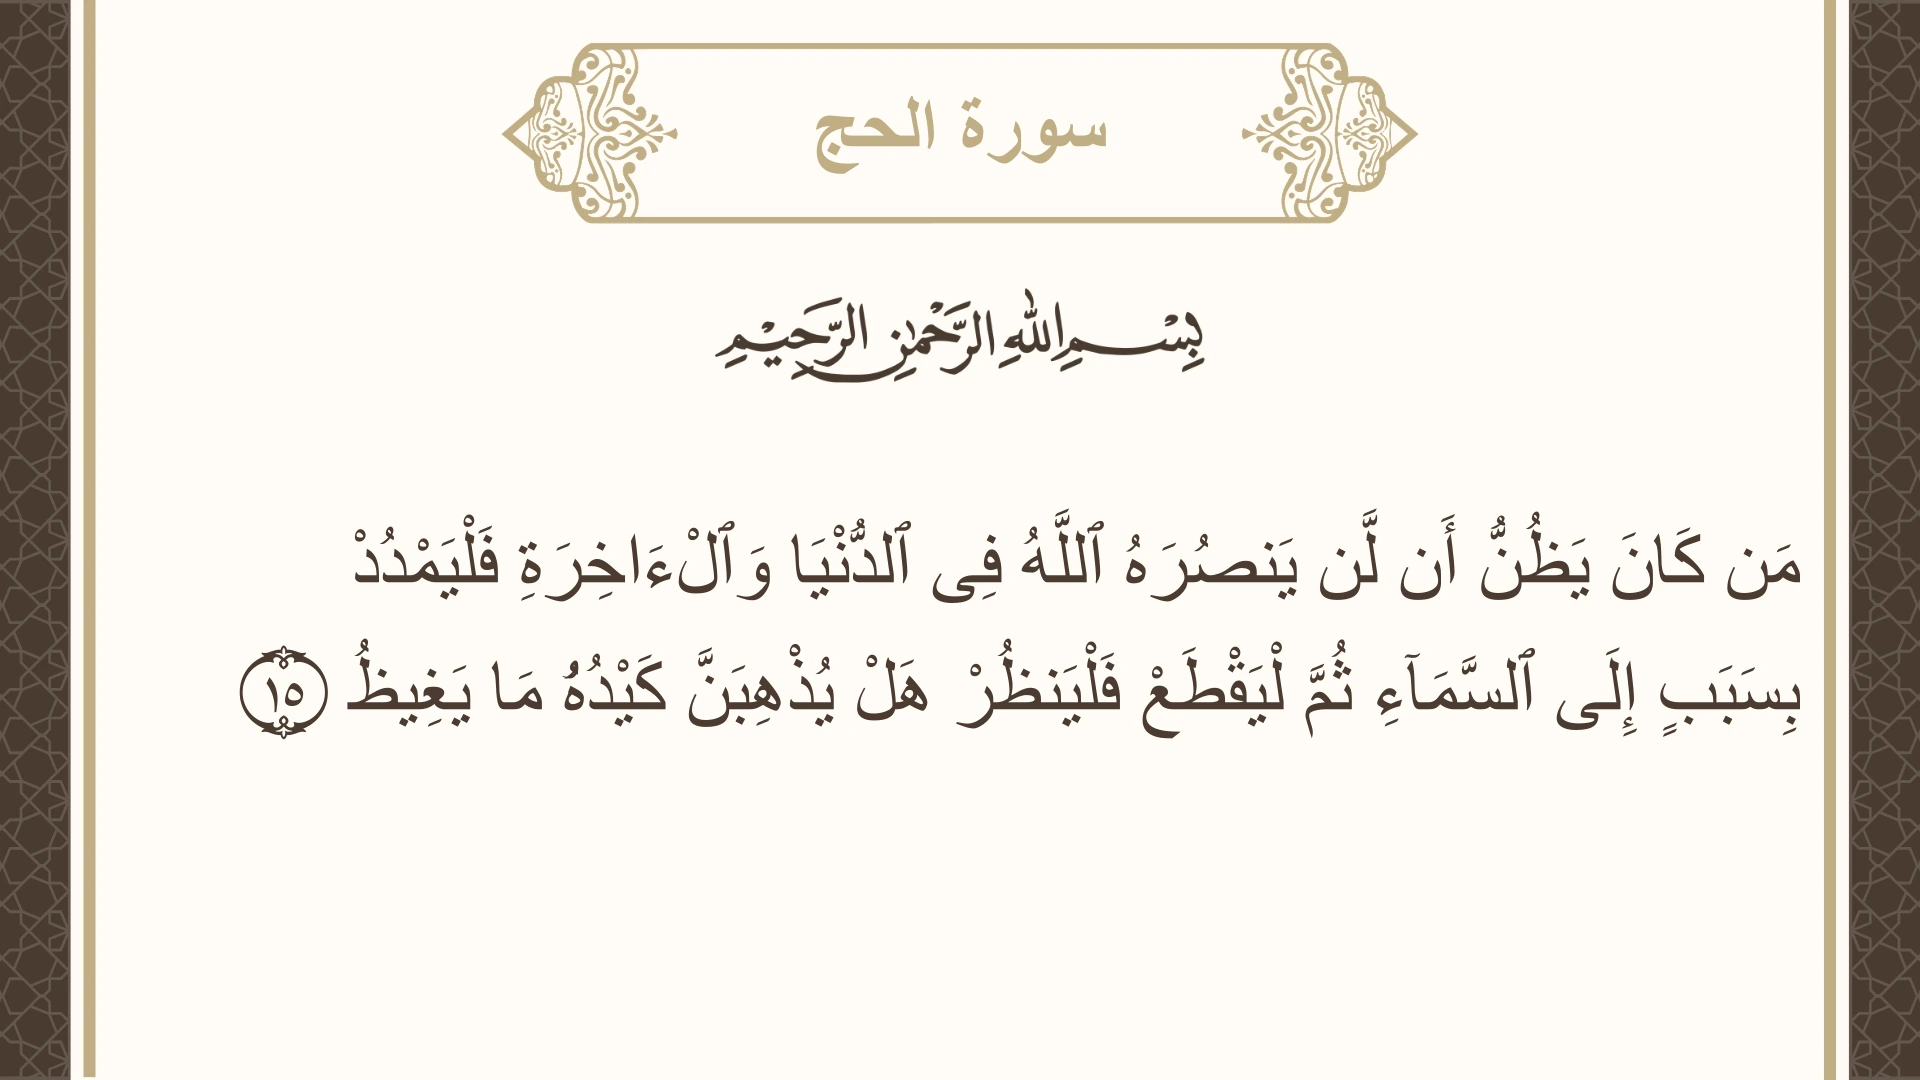 سورة الحج
بِسْمِ اللهِ الرَّحْمٰنِ الرَّحِيْمِ
مَن كَانَ يَظُنُّ أَن لَّن يَنصُرَهُ ٱللَّهُ فِى ٱلدُّنْيَا وَٱلْءَاخِرَةِ فَلْيَمْدُدْ
بِسَبَبٍ إِلَى ٱلسَّمَآءِ ثُمَّ لْيَقْطَعْ فَلْيَنظُرْ هَلْ يُذْهِبَنَّ كَيْدُهُۥ مَا يَغِيظُ ١٥